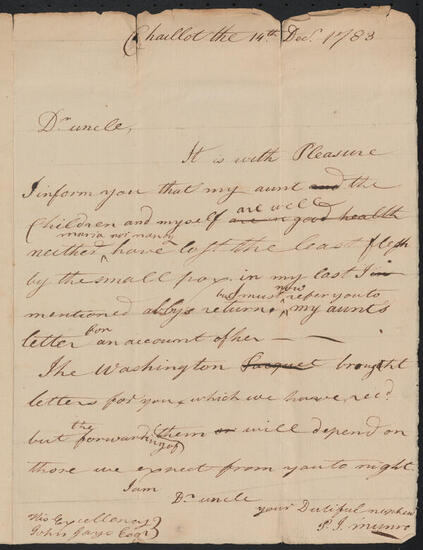 Chaillot the 14th Decr. 1783
Dr uncle,
It is with Pleasure
I inform you that my aunt and the
are well
Children and myself are in good health
maria nor nancy
neither have lost the least flesh
by the small pox. in my last I in
but I must now refer you to
mentioned abbys return. my aunts
for
letter an account of her
The Washington Pacquet brought
letters for you which we have recd
the
but forwarding of them or will depend on
those we expect from you to night
I am
Dr uncle
your Dutiful nephew
P. J. Munro
His Excellency
John Jay Esqr